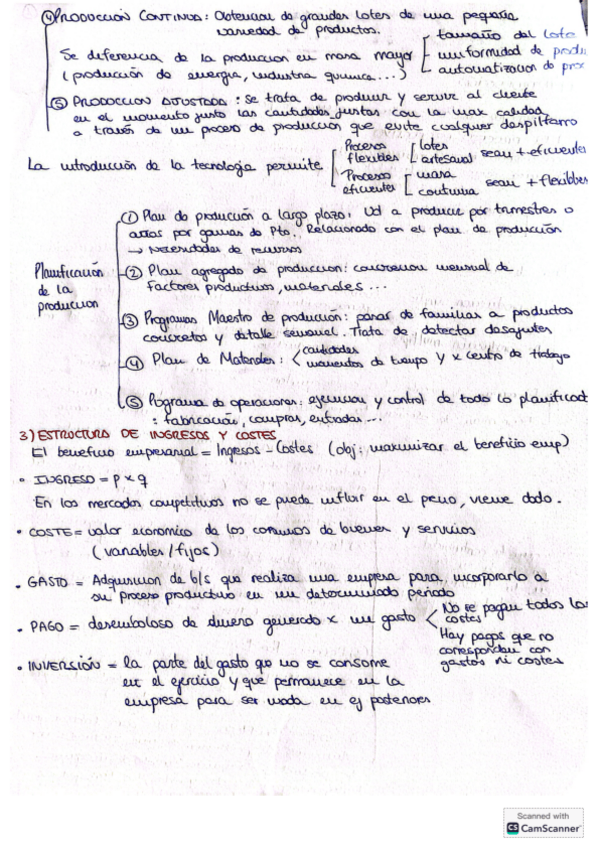 ④ PRODUCCION CONTINUA: Obtencion de grandes lotes de una pequeña
variedad de productos.
Se diferencia de la produccion en masa mayor
tamaño del lote
uniformidad de produ
automatizacion de proc
(producción de energia, industria quimica...)
⑤ PRODUCCION AJUSTADA: Se trata de producir y servir al cliente
en el momento justo las cantidades justas con la max calidad
a través de un proceso de producción que evite cualquier despilfarro
La introducción de la tecnologia permite
Procesos flexibles
lotes
artesanal
sean + eficientes
Procesos eficientes
masa
continua
sean + flexibles
Planificación
de la
produccion
① Plan de producción a largo plazo: Ud a producir por trimestres o
años por gamas de Pto. Relacionado con el plan de producción
→ Necesidades de recursos
② Plan agregado de produccion: concrecion mensual de
factores productivos, materiales...
③ Programas Maestro de producción: pasar de familias a productos
concretos y detalle semanal. Trata de detectar desajustes
④ Plan de Materiales:
cantidades
momentos de tiempo y x centro de trabajo
⑤ Programa de operaciones: ejecucion y control de todo lo planificad
: fabricación, compras, entradas...
3) ESTRUCTURA DE INGRESOS Y COSTES
El beneficio empresarial = Ingresos - Costes (obj: maximizar el beneficio emp)
• INGRESO = p x q
En los mercados competitivos no se puede influir en el precio, viene dado.
• COSTE = valor economico de los consumos de bienes y servicios
(variables/fijos)
• GASTO = Adquisicion de b/s que realiza una empresa para incorporarlo a
su proceso productivo en un determinado periodo
• PAGO = desembolso de dinero generado x un gasto
No se pagan todos los
costes
Hay pagos que no
correspondan con
gastos ni costes
• INVERSIÓN = la parte del gasto que no se consome
en el ejercicio y que permanece en la
empresa para ser usada en ej posteriores
Scanned with
CS CamScanner